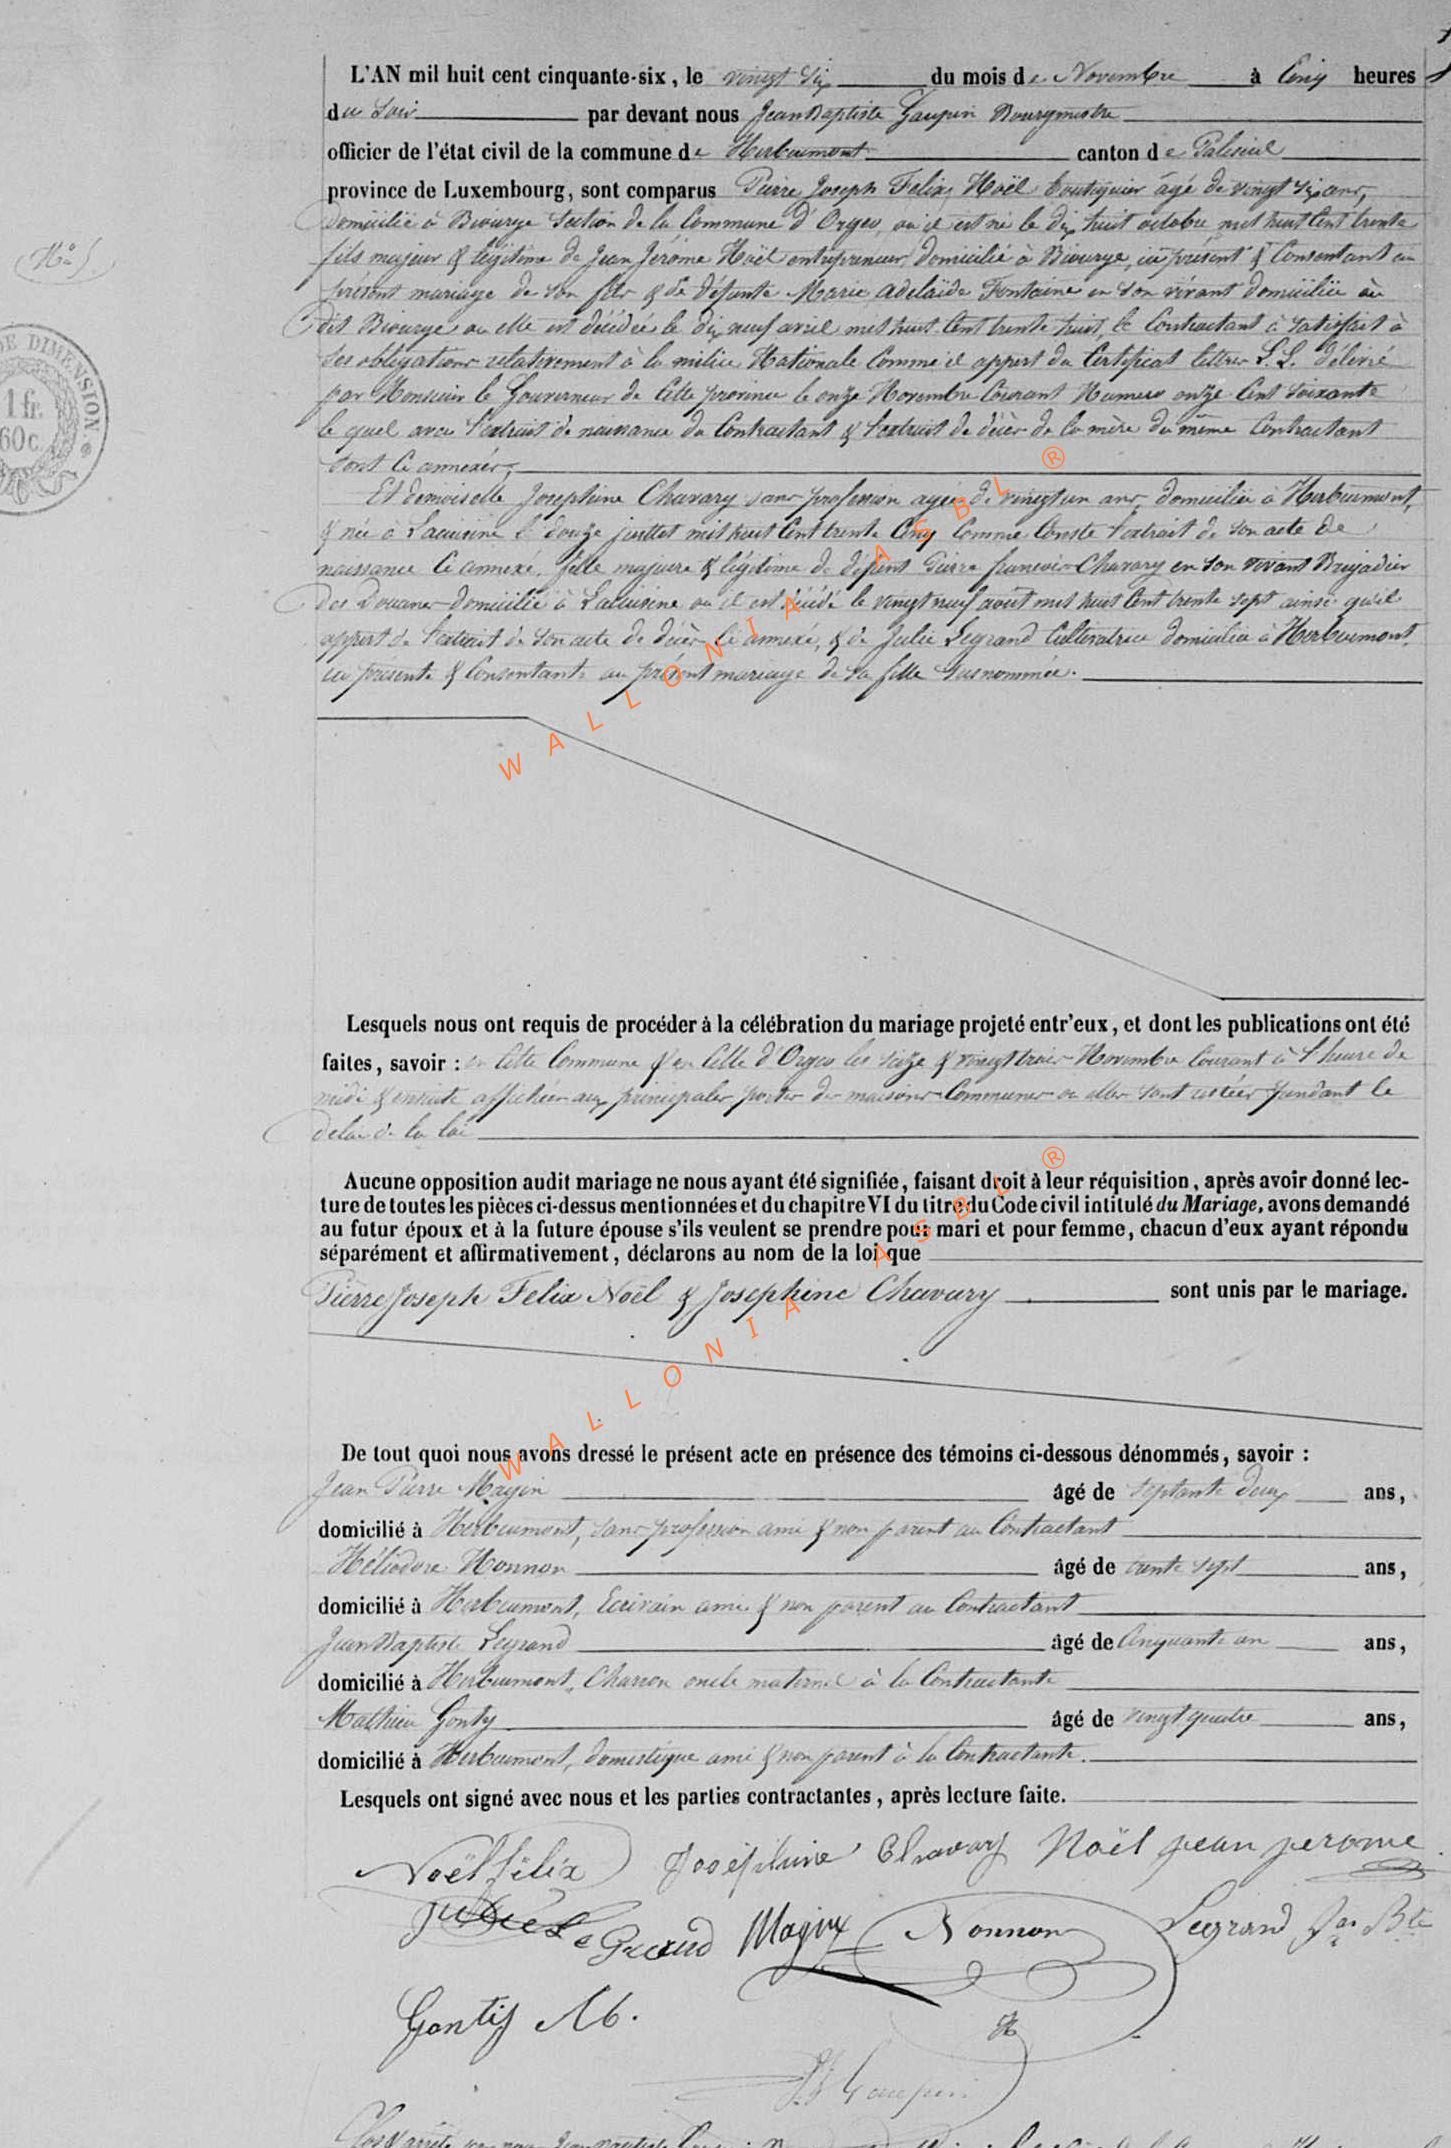 L'AN mil huit cent cinquante-six, le vingt six du mois de Novembre à Cinq heures
du soir par devant nous Jean Baptiste Gaupin Bourgmestre
officier de l'état civil de la commune de Herbeumont canton de Paliseul
province de Luxembourg, sont comparus Pierre Joseph Felix Noël boutiquier âgé de vingt six ans,
domicilié à Biourge section de la Commune d'Orgeo, où il est né le dix huit octobre mil huit Cent trente
fils majeur & légitime de Jean Jérôme Noël entrepreneur, domicilié à Biourge, ici présent & Consentant au
présent mariage de son fils & de défunte Marie Adelaïde Fontaine en son vivant domiciliée au
dit Biourge où elle est décédée le dix neuf avril mil huit Cent trente huit, le Contractant à satisfait à
ses obligations relativement à la milice Nationale Comme il appert du Certificat lettres L.L. délivré
par Monsieur le Gouverneur de Cette province le onze Novembre Courant Numero onze Cent soixante
le quel avec l'extrait de naissance du Contractant & l'extrait de décès de la mère du même Contractant
sont Ci annexés,
Et demoiselle Josephine Chavary sans profession agée de vingt un ans, domiciliée à Herbeumont,
& née à Lacuisine le douze juillet mil huit Cent trente Cinq Comme Conste l'extrait de son acte de
naissance Ci annexé, fille majeure & légitime de défunt Pierre françois Chavary en son vivant Brigadier
des Douanes domicilié à Lacuisine où il est décédé le vingt neuf août mil huit Cent trente sept ainsi qu'il
appert de l'extrait de son acte de décès Ci annexé, & de Julie Legrand Cultivatrice domiciliée à Herbeumont,
ici présente & Consentante au présent mariage de sa fille susnommée.
Lesquels nous ont requis de procéder à la célébration du mariage projeté entr'eux, et dont les publications ont été
faites, savoir : en Cette Commune & en Celle d'Orgeo les seize & vingt trois Novembre Courant à l'heure de
midi & ensuite affichées aux principales portes des maisons Communes où elles sont restées pendant le
delai de la loi
Aucune opposition audit mariage ne nous ayant été signifiée, faisant droit à leur réquisition, après avoir donné lec-
ture de toutes les pièces ci-dessus mentionnées et du chapitre VI du titre du Code civil intitulé du Mariage, avons demandé
au futur époux et à la future épouse s'ils veulent se prendre pour mari et pour femme, chacun d'eux ayant répondu
séparément et affirmativement, déclarons au nom de la loi que
Pierre Joseph Felix Noël & Josephine Chavary sont unis par le mariage.
De tout quoi nous avons dressé le présent acte en présence des témoins ci-dessous dénommés, savoir :
Jean Pierre Magin âgé de septante deux ans,
domicilié à Herbeumont, sans profession ami & non parent au Contractant
Héliodore Nonnon âgé de trente sept ans,
domicilié à Herbeumont, Ecrivain ami & non parent au Contractant
Jean Baptiste Legrand âgé de Cinquante un ans,
domicilié à Herbeumont, Charron oncle maternel à la Contractante
Mathieu Gonty âgé de vingt quatre ans,
domicilié à Herbeumont, domestique ami & non parent à la Contractante.
Lesquels ont signé avec nous et les parties contractantes, après lecture faite.
Noël félix Joséphine Chavary Noël jean jerome
Julie Legrand Magin Nonnon Legrand Jn Bte
Gontij M.
Gaupin
No 5
DE DIMENSION
1 fr.
60 c.
WALLONIA ASBL ®
WALLONIA ASBL ®